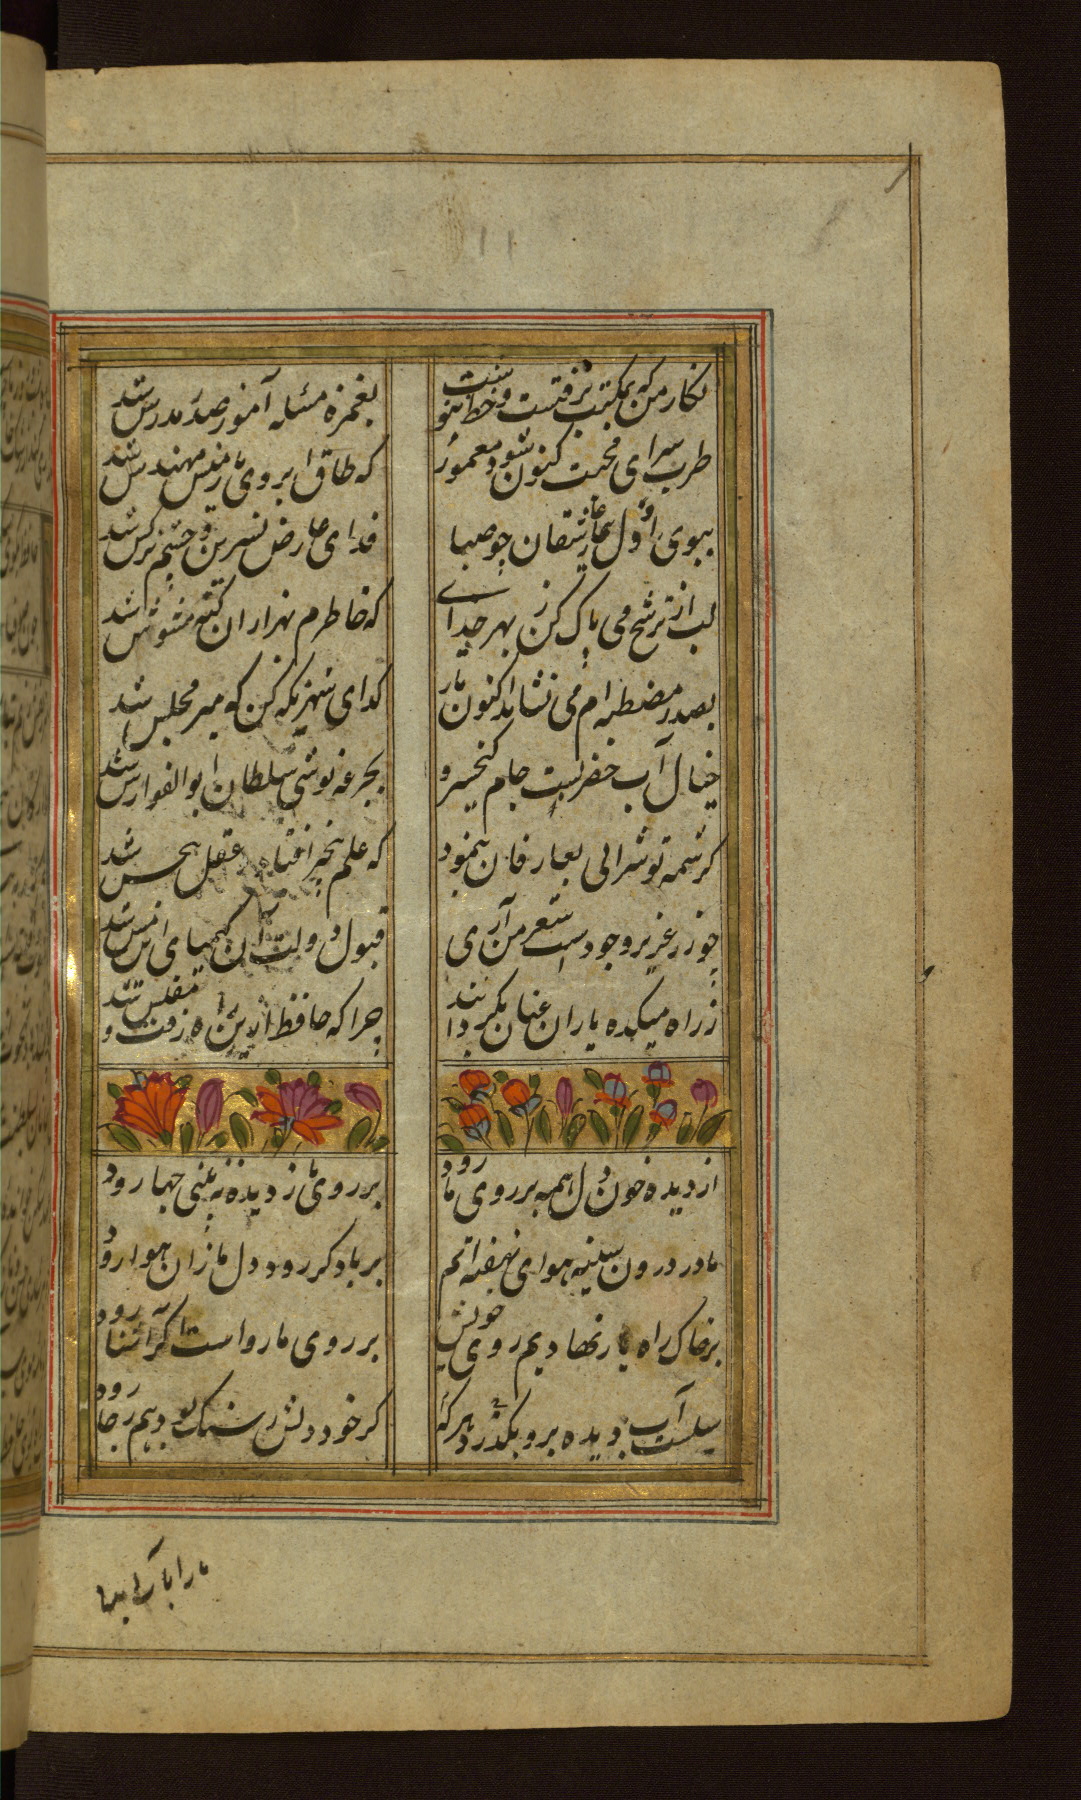 نکار من که بمکتب نرفتست و خط ننوشت
بغمزه مسئله آموز صد مدرس شد
طرب سرای محبت کنون شود معمور
که طاق ابروی یار منش مهندس شد
ببوی او دل بیمار عاشقان چو صبا
فدای عارض نسرین و چشم نرکس شد
لب از ترشح می پاک کن ز بهر خدای
که خاطرم بهزاران کنه مشوش شد
بصدر مصطبه ام می نشاند اکنون یار
کدای شهر نکه کن که میر مجلس شد
خیال آب خضر بست و جام کیخسرو
بجرعه نوشی سلطان ابوالفوارس شد
کرشمه تو شرابی بعارفان بنمود
که علم بیخبر افتاد عقل بیحس شد
چو زر عزیز وجودست شعر من آری
قبول دولتیان کیمیای این مس شد
ز راه میکده یاران عنان بکردانید
چرا که حافظ ازین راه رفت و مفلس شد
از دیده خون دل همه بر روی ما رود
بر روی ما ز دیده نه بینی چها رود
ما در درون سینه هوای نهفته ایم
بر باد کر رود دل ما زان هوا رود
بر خاک راه یار نهادیم روی خویش
بر روی ما رواست اکر آشنا رود
سیلست آب دیده بر و بکذرد بهر که
کر خود دلش ز سنک بود هم ز جا رود
ما را بآب دیده